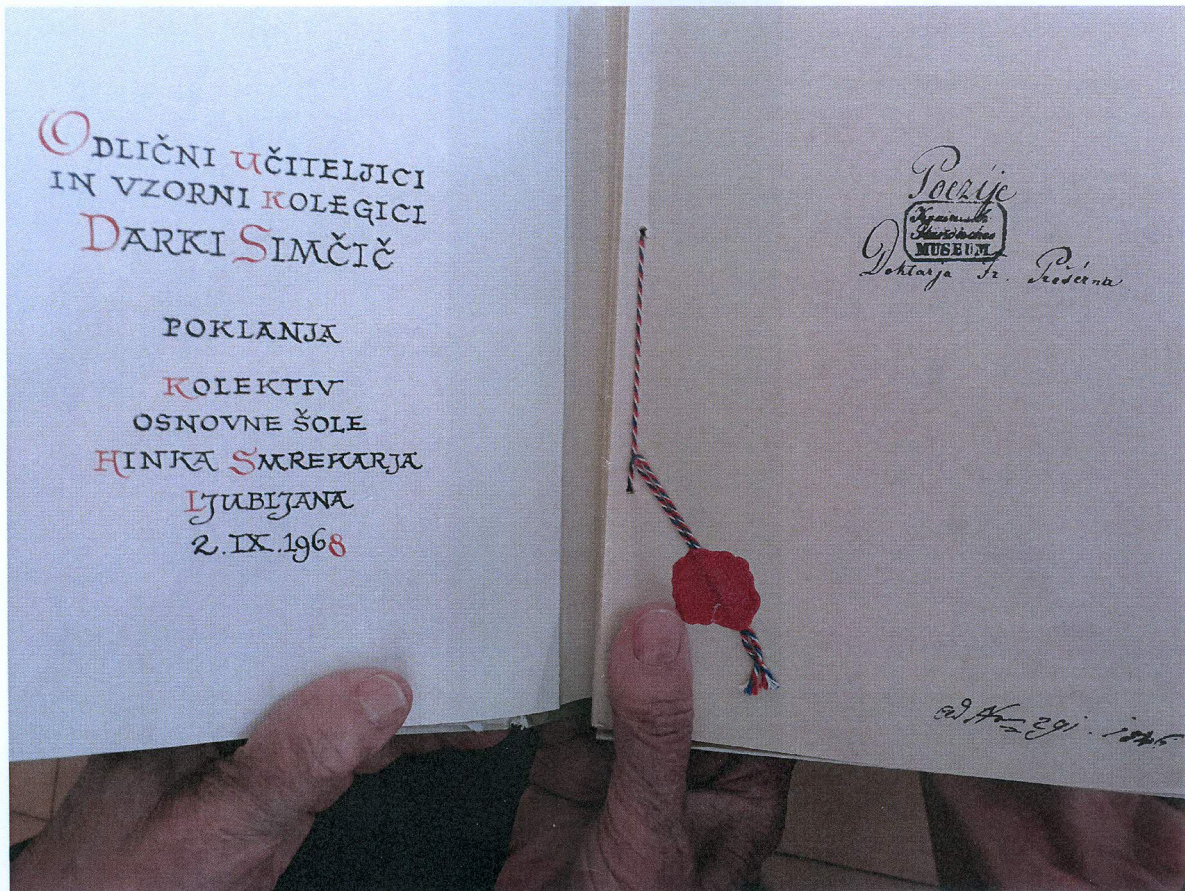 ODLIČNI UČITELJICI
IN VZORNI KOLEGICI
DARKI SIMČIČ
POKLANJA
KOLEKTIV
OSNOVNE ŠOLE
HINKA SMREKARJA
LJUBLJANA
2.IX.1968
Poezije
MUSEUM
Doktarja Fr. Prešérna
ad 1846